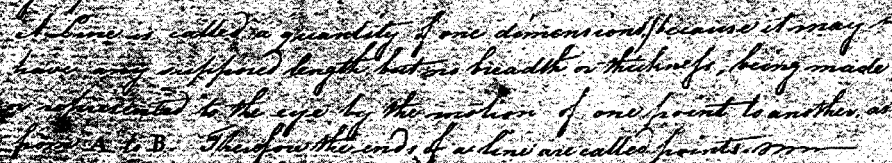 A Line is called a quantity of one dimension, because it may
have any supposed length but no breadth or thickness, being made
or represented to the eye, by the motion of one point to another, as
from A to B. Therefore the ends of a line are called points.